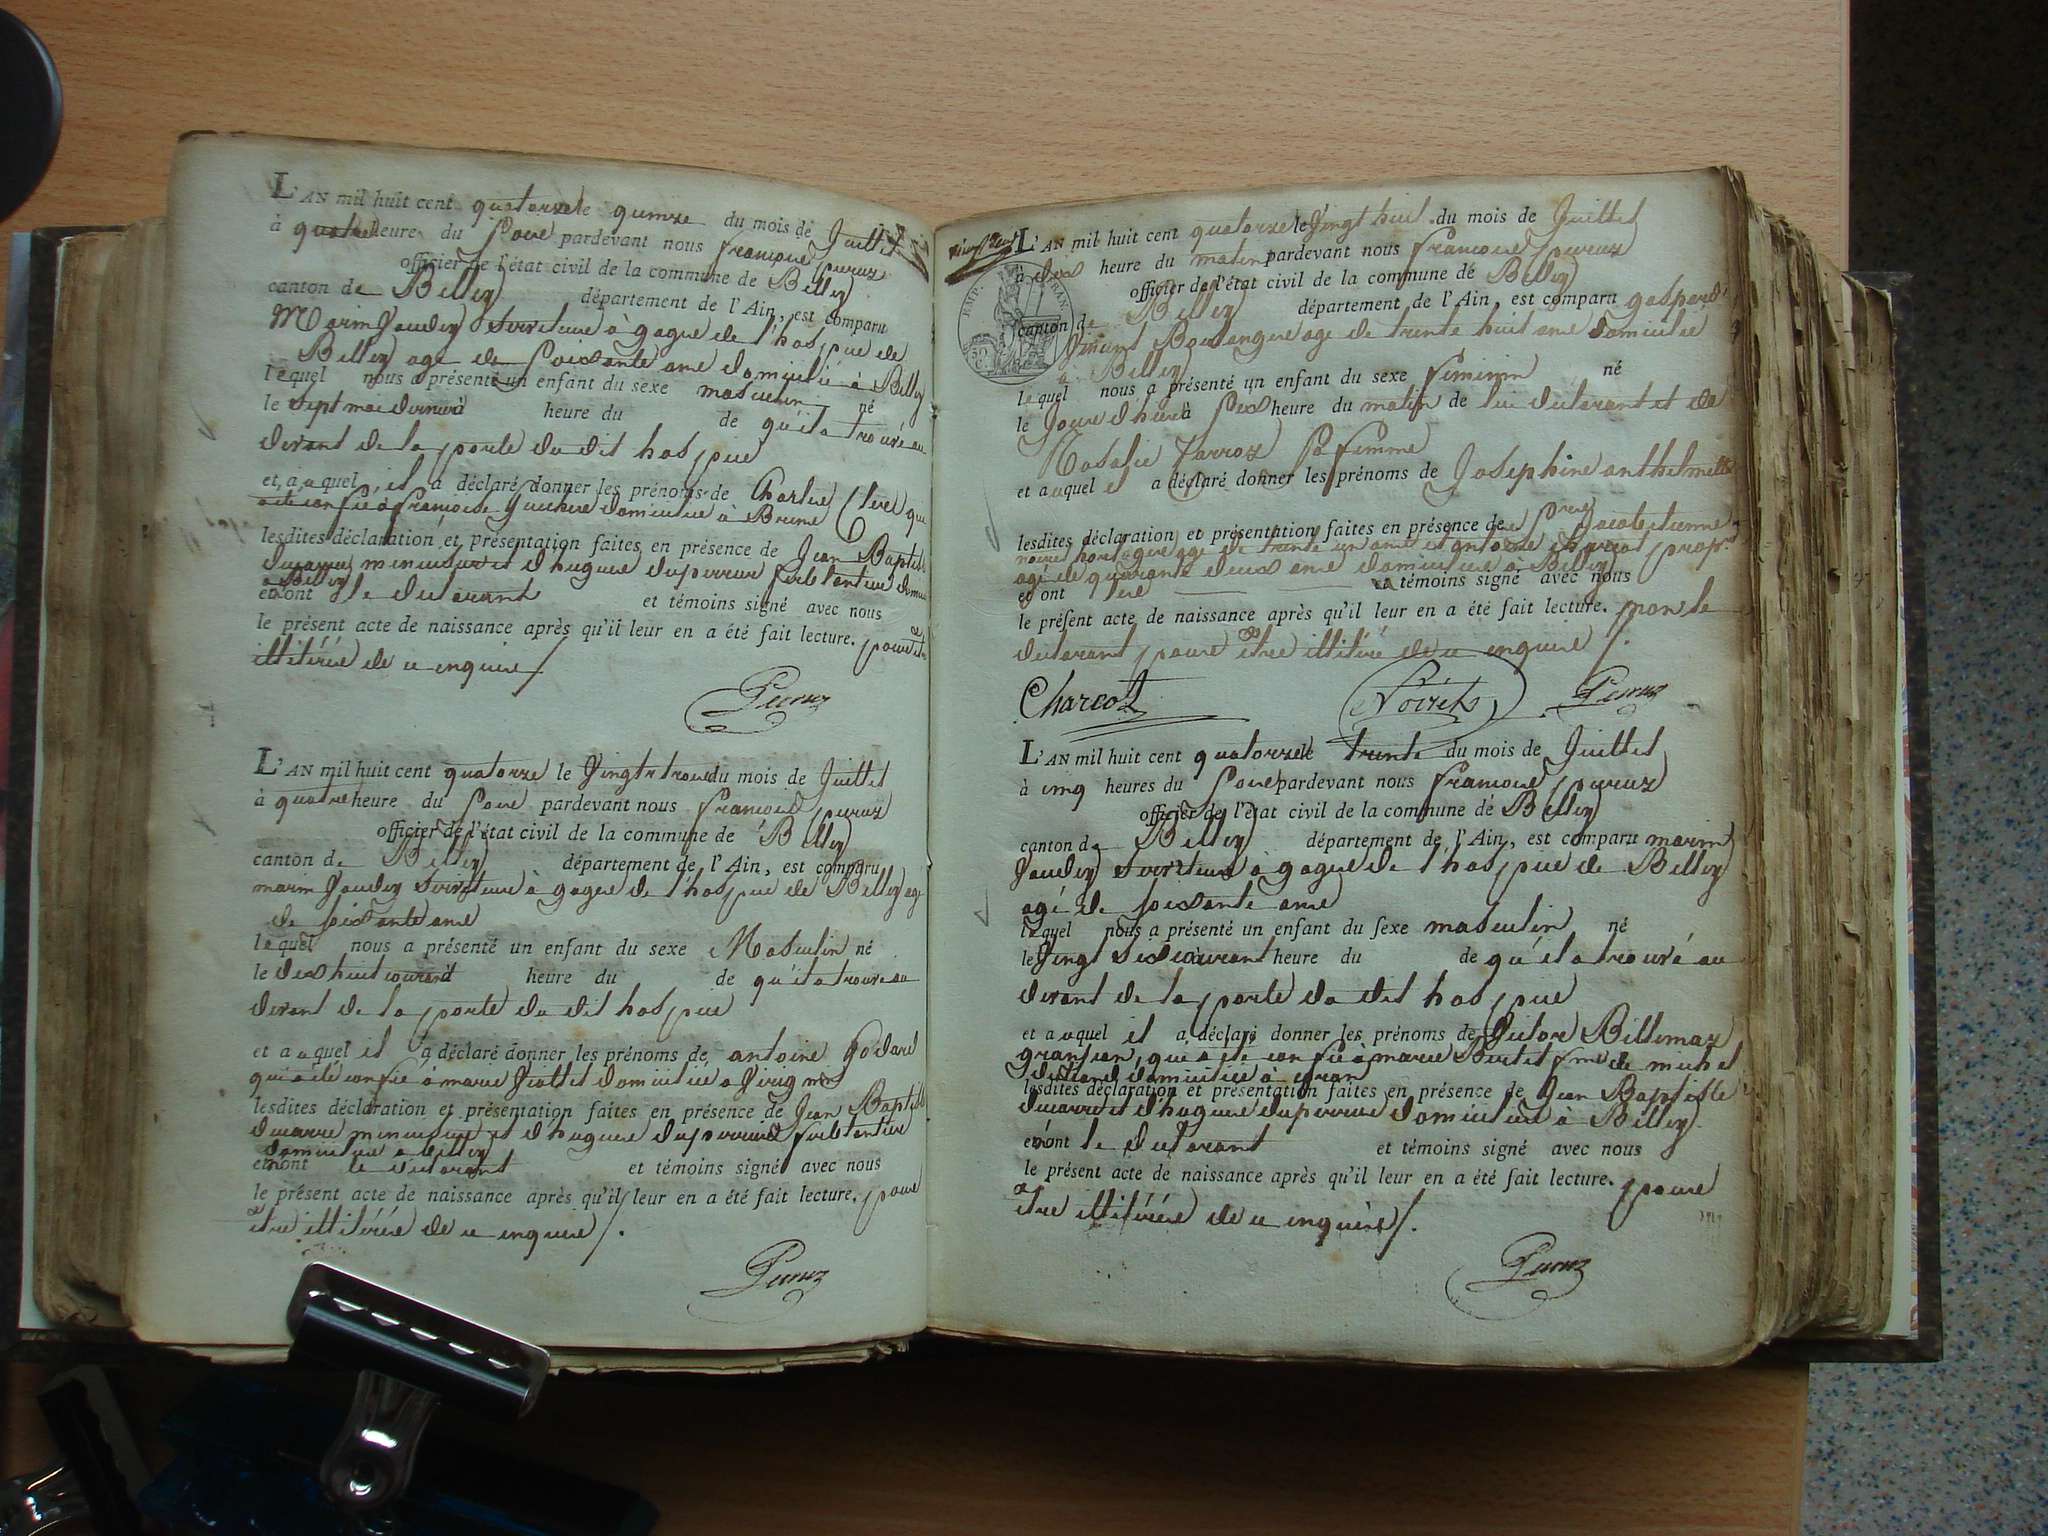 L'AN mil huit cent quatorze le quinze du mois de Juillet
à quatre heure du Soire pardevant nous françois peruz
officier de l'état civil de la commune de Belley
canton de Belley département de l'Ain, est comparu
Marin Jaudey Serviteur à gague de l'hospice de
Belley agé de soixante ans domicilié à Belley
lequel nous a présenté un enfant du sexe masculin né
le sept mai dernier à heure du de qu'il a trouvé au
devant de la porte du dit hospice
et auquel il a déclaré donner les prénoms de Charles
a été confié à françoise domicilié à
lesdites déclaration et présentation faites en présence de Jean Baptiste
ducarre menuisier et d'hugues duperreux
à Belley
et n'ont le déclarant et témoins signé avec nous
le présent acte de naissance après qu'il leur en a été fait lecture. pour être
illitérés de ce enquis /
Peruz
L'AN mil huit cent quatorze le Vingt trois du mois de Juillet
à quatre heure du Soire pardevant nous françois peruz
officier de l'état civil de la commune de Belley
canton de Belley département de l'Ain, est comparu
marin Jaudey Serviteur à gague de l'hospice de Belley agé
de soixante ans
lequel nous a présenté un enfant du sexe Masculin né
le dix huit courant à heure du de qu'il a trouvé au
devant de la porte du dit hospice
et auquel il a déclaré donner les prénoms de antoine Godard
qui a été confié à marie domicilié à
lesdites déclaration et présentation faites en présence de Jean Baptiste
ducarre menuisier et d'hugues duperreux
domiciliés à Belley
et n'ont le déclarant et témoins signé avec nous
le présent acte de naissance après qu'il leur en a été fait lecture. pour
être illitérés de ce enquis /.
Peruz
L'AN mil huit cent quatorze le Vingt huit du mois de Juillet
à dix heure du matin pardevant nous françois peruz
officier de l'état civil de la commune de Belley
canton de Belley département de l'Ain, est comparu gaspard
Boulanger agé de trente huit ans domicilié
à Belley
lequel nous a présenté un enfant du sexe feminin né
le Jour d'hui à Six heure du matin de lui déclarant et de
Rosalie Sa femme
et auquel il a déclaré donner les prénoms de Josephine anthelmette
lesdites déclaration et présentation faites en présence de Jacob etienne
noirets horlogere agé de trente un ans et antoine charcot propre
agé de quarante deux ans domiciliés à Belley
et ont et témoins signé avec nous
le présent acte de naissance après qu'il leur en a été fait lecture. non le
déclarant pour être illitéré de ce enquis /.
Charcot Noirets Peruz
L'AN mil huit cent quatorze le trente du mois de Juillet
à cinq heures du Soire pardevant nous françois peruz
officier de l'état civil de la commune de Belley
canton de Belley département de l'Ain, est comparu marin
Jaudey Serviteur à gague de l'hospice de Belley
agé de soixante ans
lequel nous a présenté un enfant du sexe masculin né
le Vingt Six courant à heure du de qu'il a trouvé au
devant de la porte du dit hospice
et auquel il a déclaré donner les prénoms de Victor
qui a été confié à marie fme de michel
domiciliée à
lesdites déclaration et présentation faites en présence de Jean Baptiste
ducarre et d'hugues duperreux domiciliés à Belley
et n'ont le déclarant et témoins signé avec nous
le présent acte de naissance après qu'il leur en a été fait lecture. pour
être illitérés de ce enquis /.
Peruz